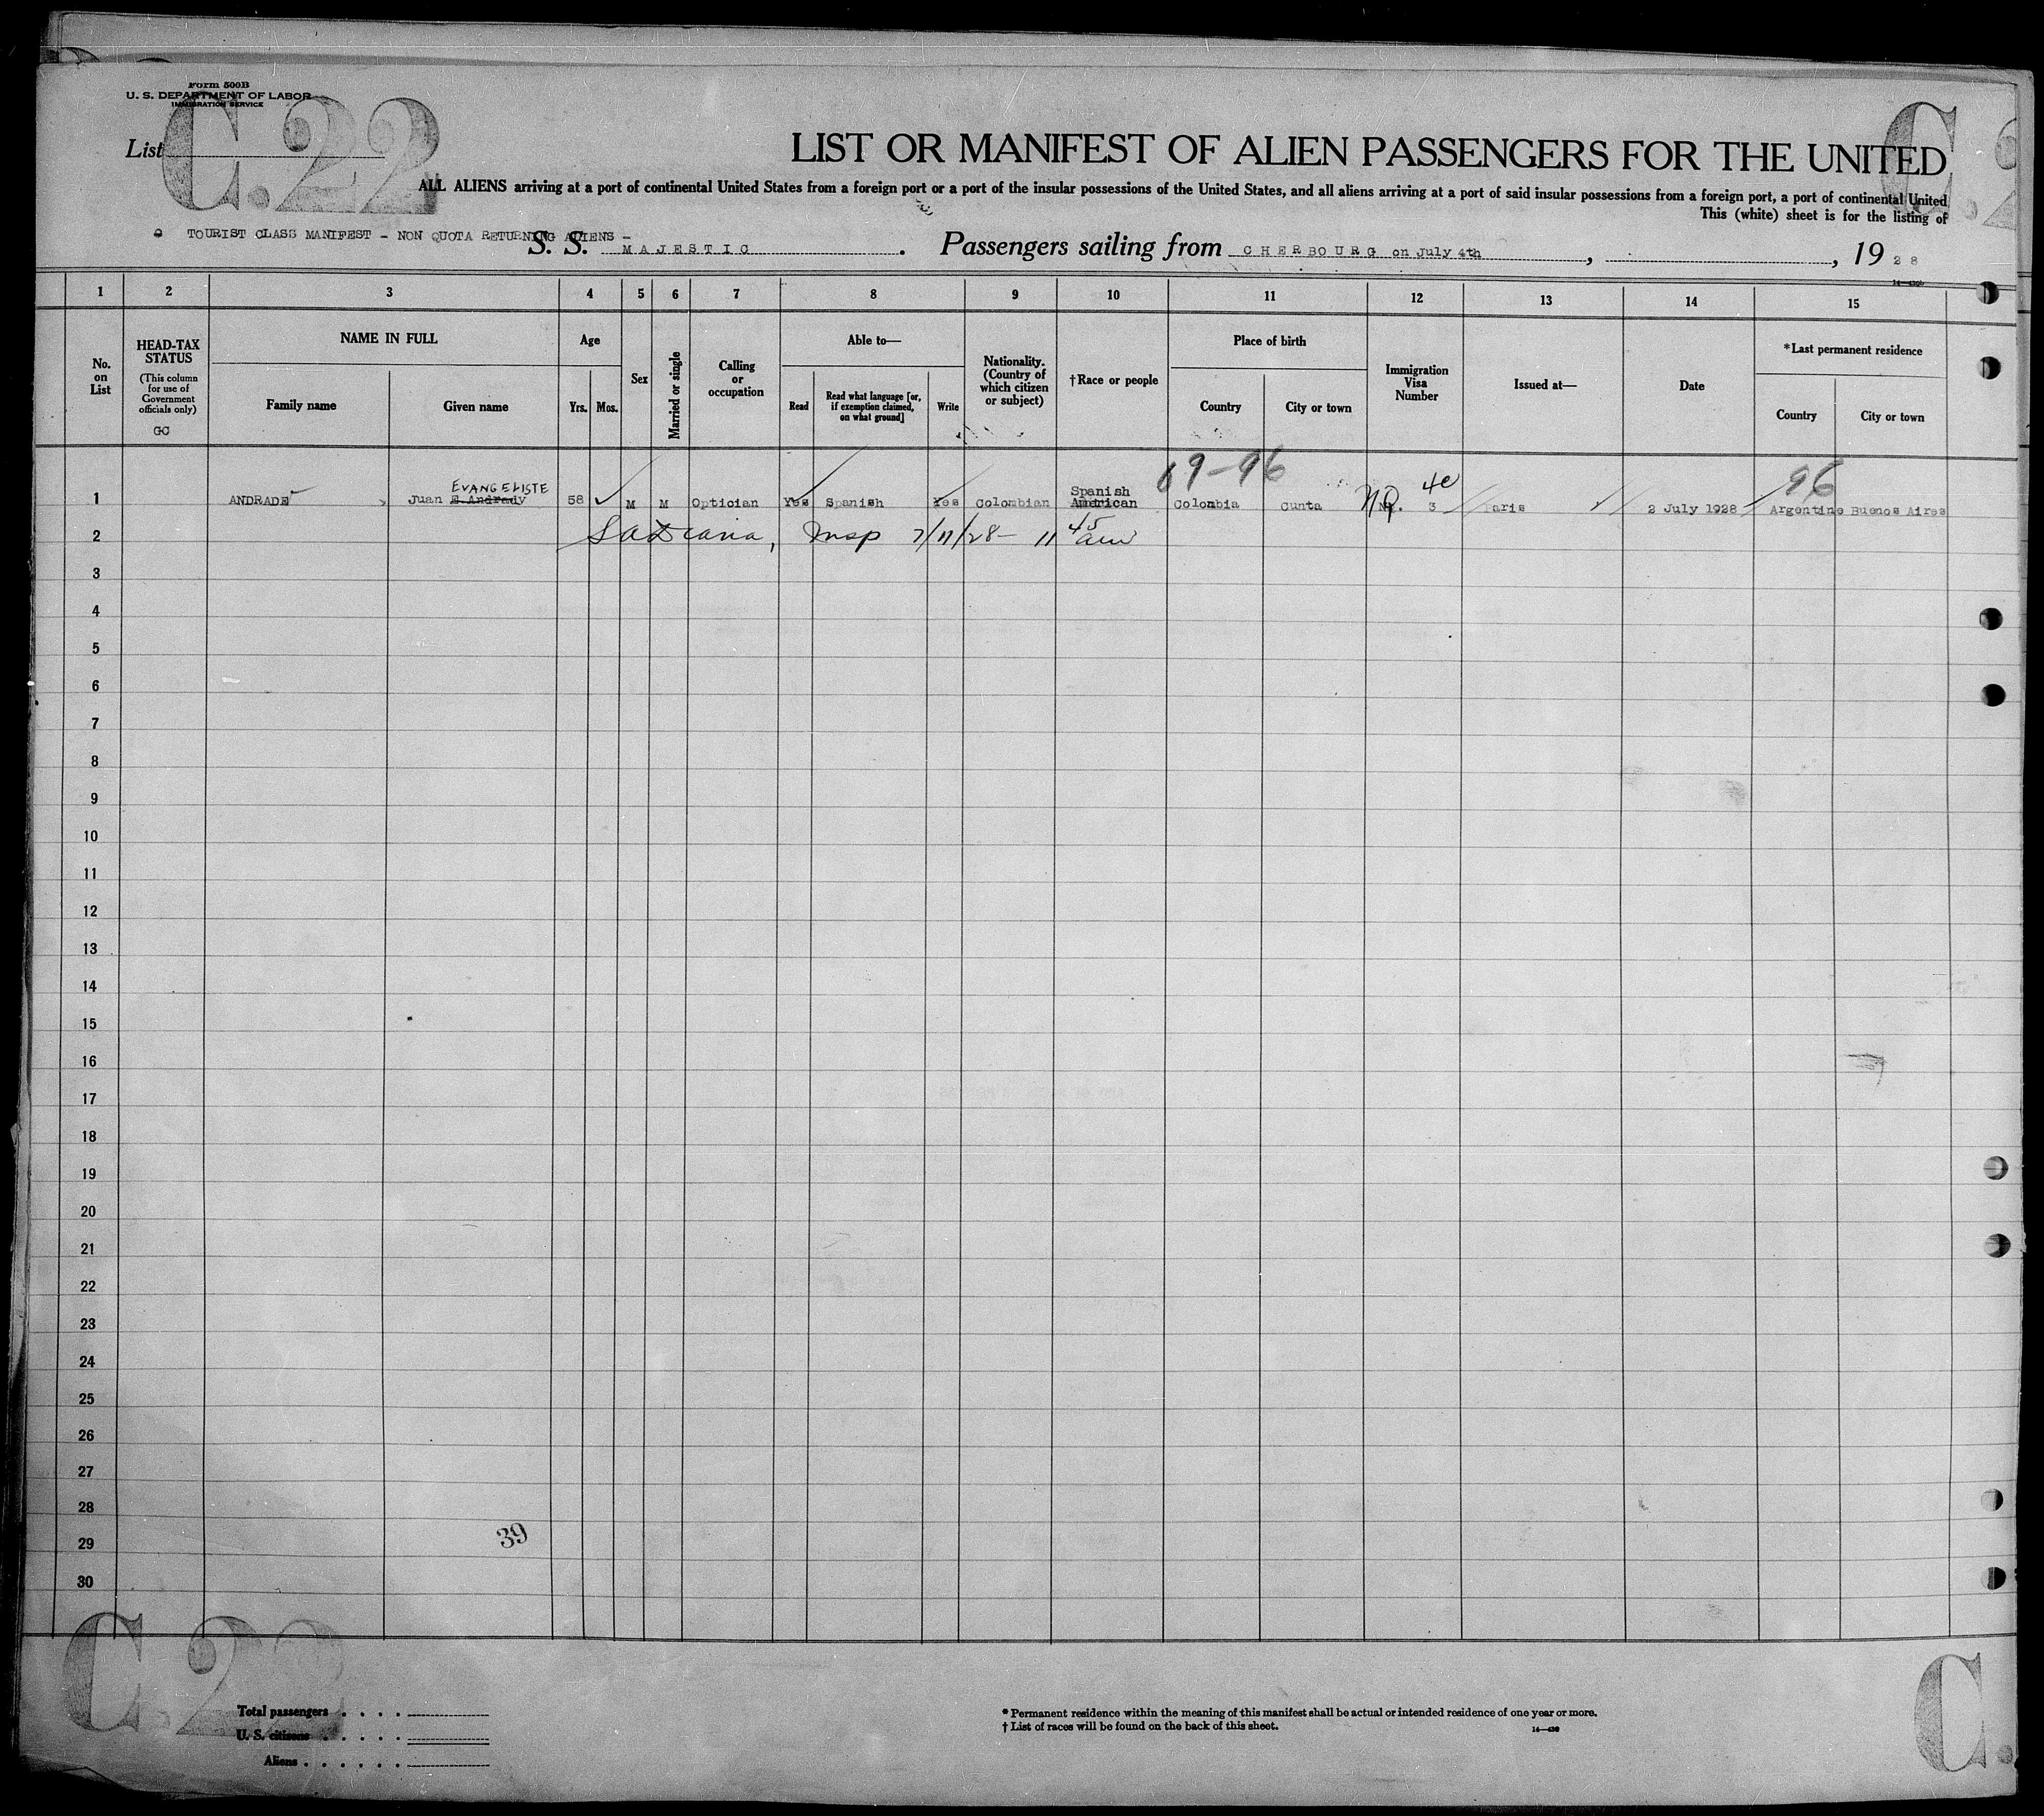 Form 500B
U. S. DEPARTMENT OF LABOR
IMMIGRATION SERVICE
C.22
C.2
List
LIST OR MANIFEST OF ALIEN PASSENGERS FOR THE UNITED
ALL ALIENS arriving at a port of continental United States from a foreign port or a port of the insular possessions of the United States, and all aliens arriving at a port of said insular possessions from a foreign port, a port of continental United
This (white) sheet is for the listing of
TOURIST CLASS MANIFEST - NON QUOTA RETURNING ALIENS -
S. S. MAJESTIC. Passengers sailing from CHERBOURG on July 4th, , 1928
1 2 3 4 5 6 7 8 9 10 11 12 13 14 15
No. on List
HEAD-TAX STATUS
(This column for use of Government officials only)
GC
NAME IN FULL
Family name
Given name
Age
Yrs.
Mos.
Sex
Married or single
Calling or occupation
Able to—
Read
Read what language [or, if exemption claimed, on what ground]
Write
Nationality. (Country of which citizen or subject)
†Race or people
Place of birth
Country
City or town
Immigration Visa Number
Issued at—
Date
*Last permanent residence
Country
City or town
69-96
96
EVANGELISTE
4e
1 ANDRADE Juan E. Andrady 58 M M Optician Yes Spanish Yes Colombian Spanish American Colombia Cunta 3 Paris 2 July 1928 Argentine Buenos Aires
2 Insp 7/11/28 - 11 45 am
3
4
5
6
7
8
9
10
11
12
13
14
15
16
17
18
19
20
21
22
23
24
25
26
27
28
29
39
30
C.22
C.
Total passengers
U. S. citizens
Aliens
* Permanent residence within the meaning of this manifest shall be actual or intended residence of one year or more.
† List of races will be found on the back of this sheet.
14—430